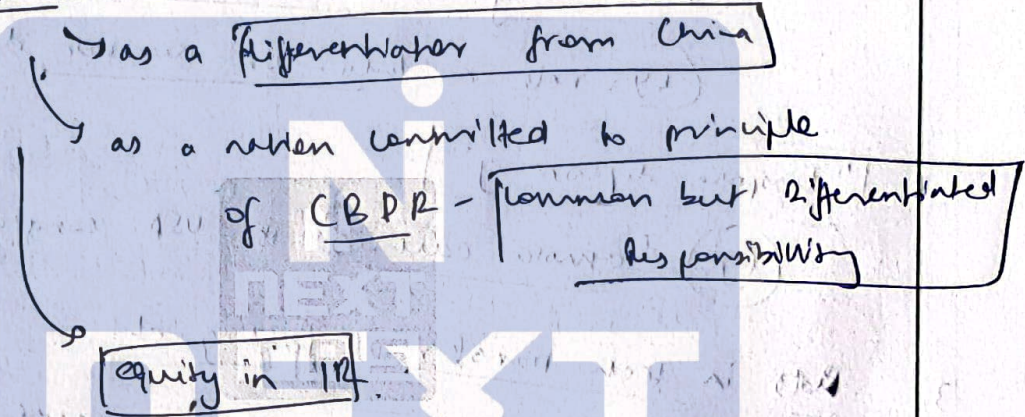 → as a differentiator from China
→ as a nation committed to principle
of CBDR - Common but Differentiated
Responsibility
→ equity in IR
NEXT